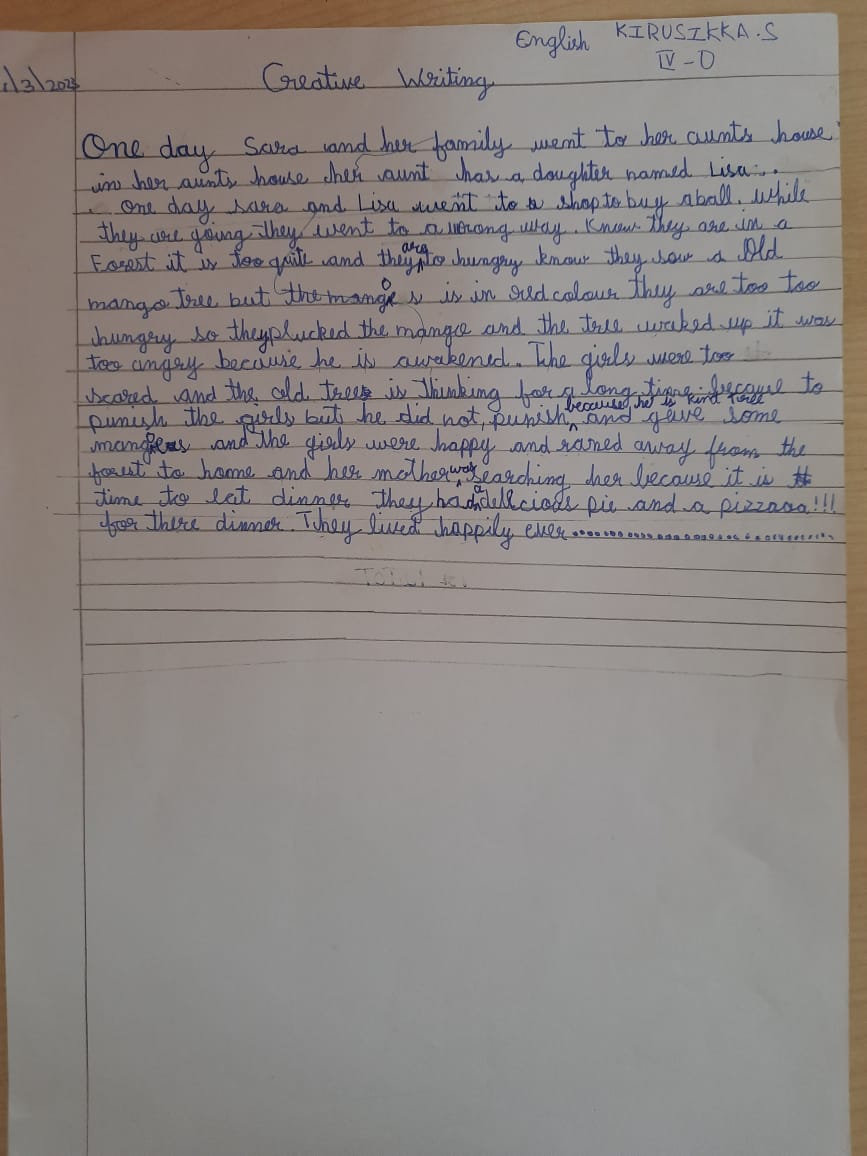 English KIRUSIKKA.S
IV-D
/3/2023
Creative Writing
One day Sara and her family went to her aunts house
in her aunts house her aunt has a doughter named Lisa..
One day sara and Lisa went to a shop to buy a ball. while
they are going They went to a wrong way. Know they are in a
Forest it is too quite and they are to hungry know they saw a Old
mango tree but the mangos is in red colour they are too too
hungry so they plucked the mangoe and the tree waked up it was
too angry because he is awakened. The girls were too
scared and the old tree is thinking for a long time because to
punish the girls but he did not, punish because he is kind tree and gave some
mangoes and the girls were happy and raned away from the
forest to home and her mother was searching her because it is
time to eat dinner They had a delicious pie and a pizzaaa!!!
for there dinner. They lived happily ever..............................